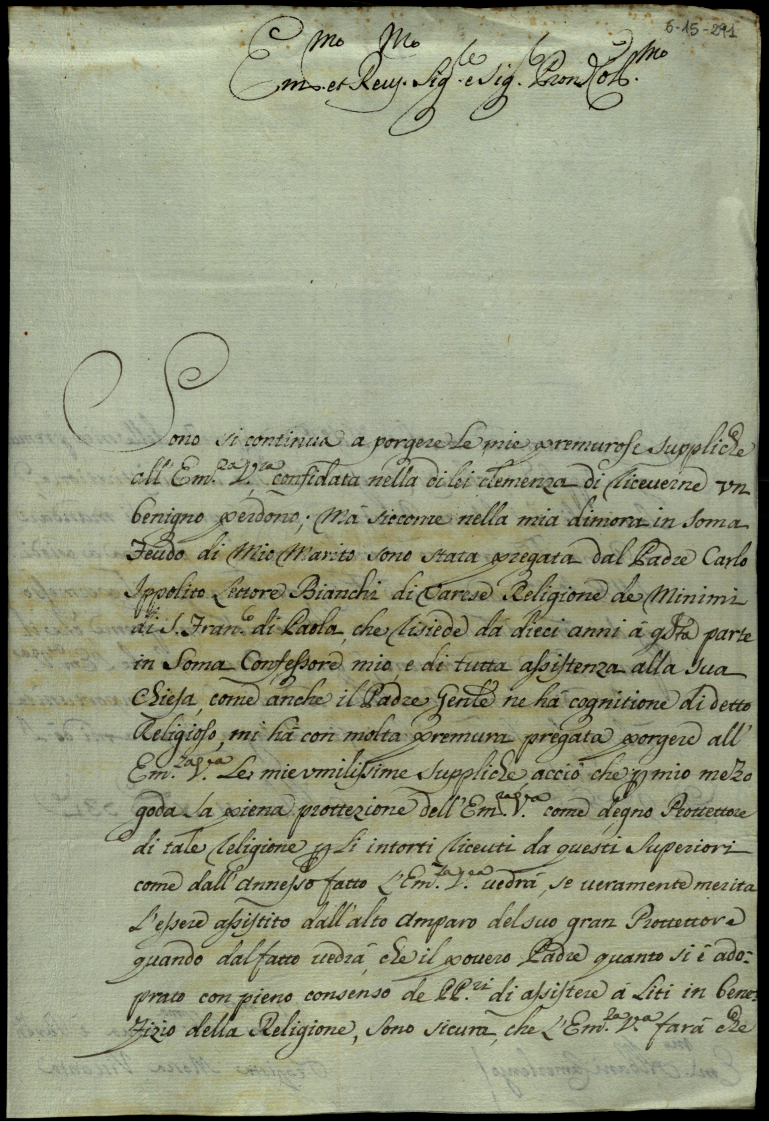 6-15-291
Em.mo et Reu.mo Sig.le e Sig.e Pron Col.mo
Sono si continua a porgere le mie premurose suppliche
all'Em.za V.ra confidata nella di lei clemenza di riceuerne vn
benigno perdono; Mà siccome nella mia dimora in Soma
Feudo di Mio Marito sono stata pregata dal Padre Carlo
Ippolito Lettore Bianchi di Varese Religione de Minimi
di S. Fran.co di Paola, che risiede da dieci anni à q.sta parte
in Soma Confessore mio, e di tutta assistenza alla sua
Chiesa, come anche il Padre Gen.le ne hà cognitione di detto
Religioso, mi hà con molta premura pregata porgere all'
Em.za V.ra Le mie vmilissime suppliche acciò che p mio mezo
goda la piena prottezione dell'Em.za V.ra come degno Prottettore
di tale religione p li intorti riceuti da questi Superiori
come dall'annesso fatto L'Em.za V.ra vedrà, se ueramente merita
L'essere assistito dall'alto amparo del suo gran Prottettore
quando dal fatto uedrà, che il pouero Padre quanto si è ado=
prato con pieno consenso de PP.ri di assistere à Liti in bene=
fizio della Religione, sono sicura, che L'Em.za V.ra farà che